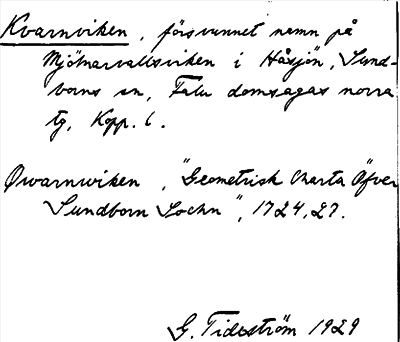 Kvarnviken, försvunnet namn på
Mjölnarvallsviken i Håsjön, Sund-
borns sn, Falu domsagas norra
tg, Kopp. l.
Qwarnwiken, "Geometrisk Charta Öfver
Sundborn Sochn", 1724, 27.
G. Tideström 1929